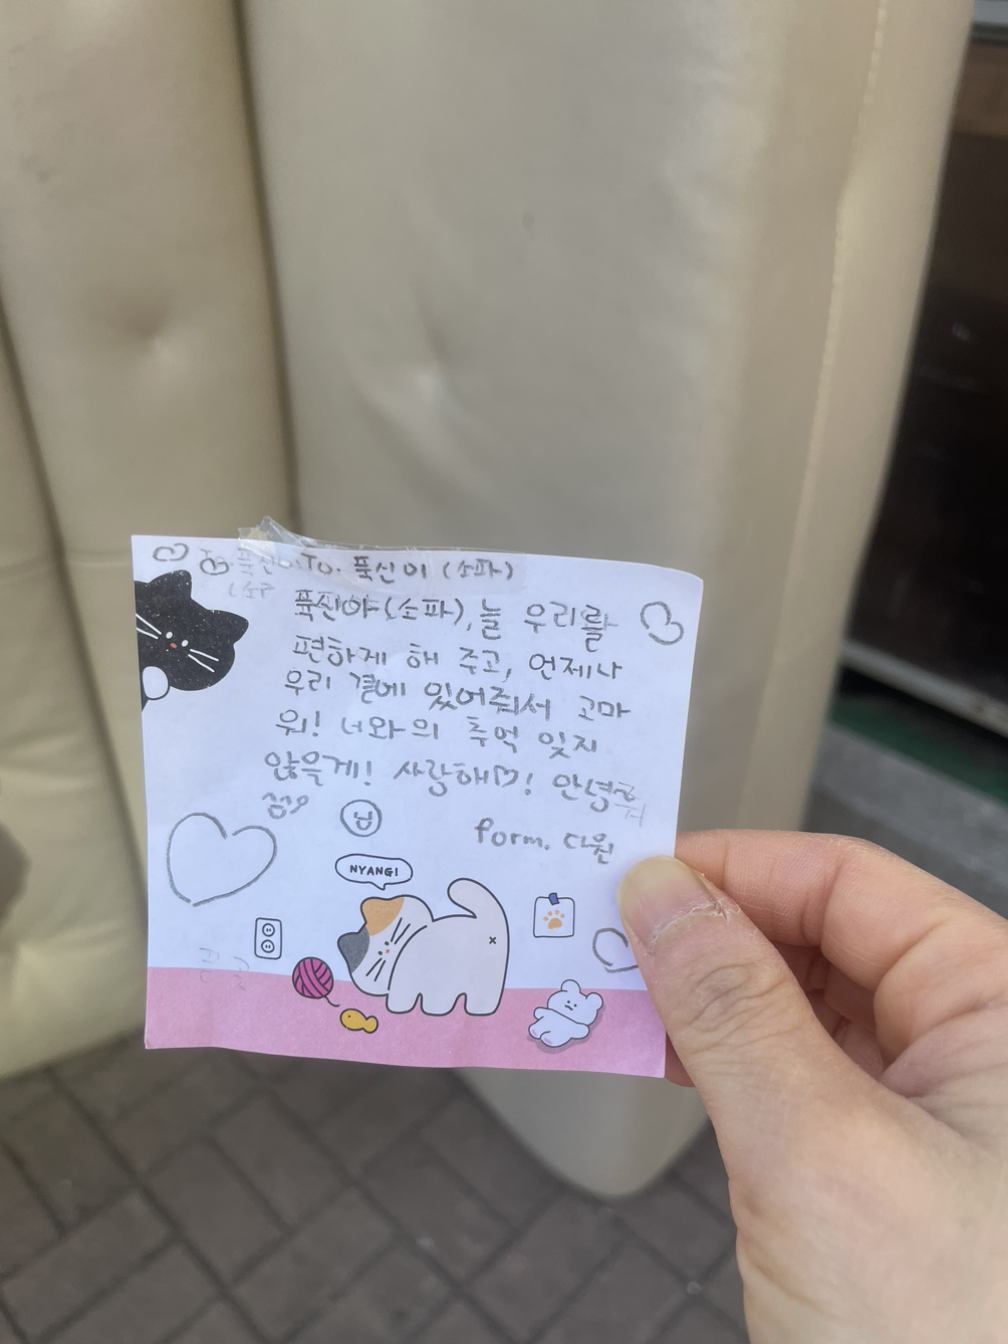 To. 푹신이 (소파)
푹신아(소파), 늘 우리를
편하게 해 주고, 언제나
우리 곁에 있어줘서 고마
워! 너와의 추억 잊지
않을게! 사랑해♡! 안녕
form. 다원
NYANG!